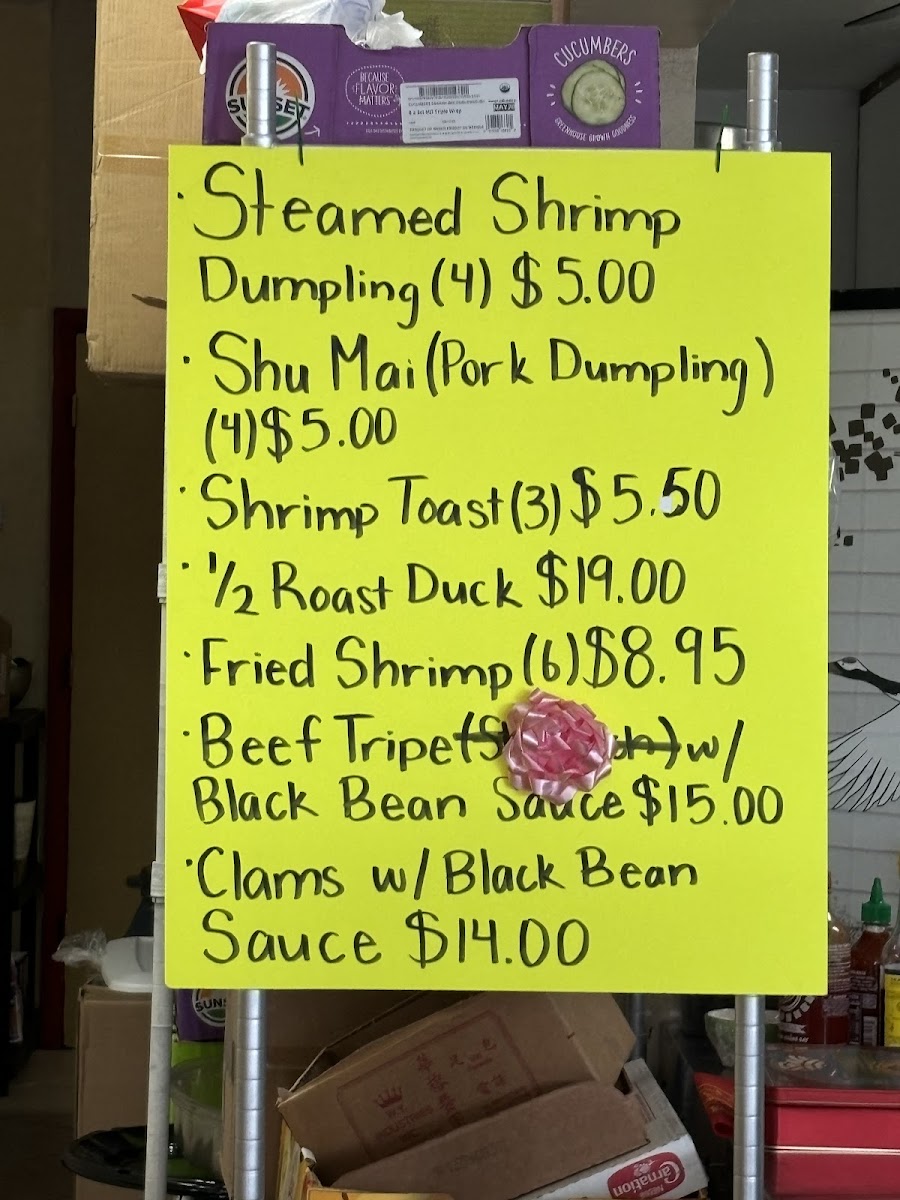 SUNSET
BECAUSE
FLAVOR
MATTERS
CUCUMBERS
GREENHOUSE GROWN GOODNESS
• Steamed Shrimp
Dumpling (4) $5.00
• Shu Mai (Pork Dumpling)
(4) $5.00
• Shrimp Toast (3) $5.50
• 1/2 Roast Duck $19.00
• Fried Shrimp (6) $8.95
• Beef Tripe w/
Black Bean Sauce $15.00
• Clams w/ Black Bean
Sauce $14.00
SUNS
Nestle
Carnation